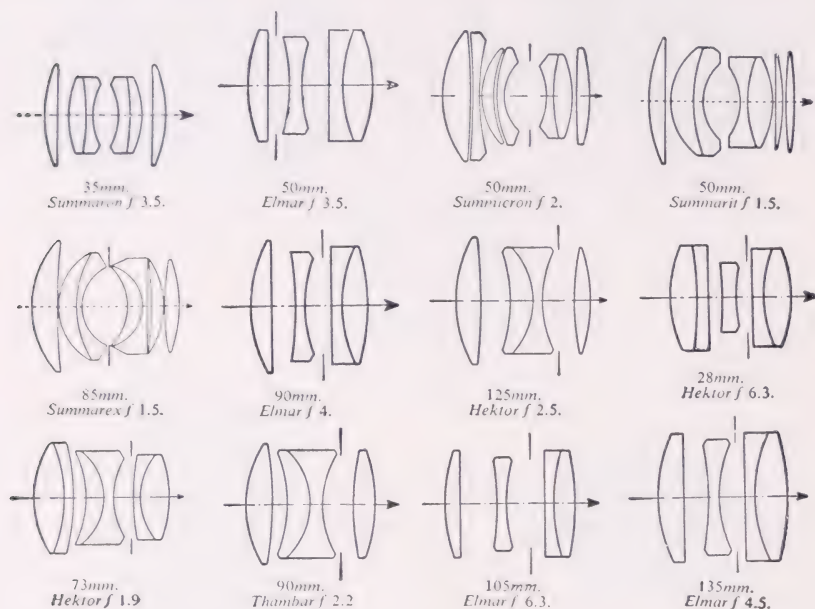 35mm.
Summaron f 3.5.
50mm.
Elmar f 3.5.
50mm.
Summicron f 2.
50mm.
Summarit f 1.5.
85mm.
Summarex f 1.5.
90mm.
Elmar f 4.
125mm.
Hektor f 2.5.
28mm.
Hektor f 6.3.
73mm.
Hektor f 1.9
90mm.
Thambar f 2.2
105mm.
Elmar f 6.3.
135mm.
Elmar f 4.5.